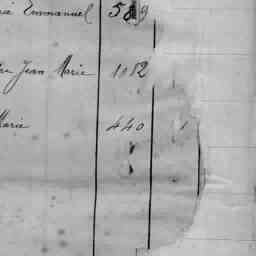 Emmanuel 589
Jean Marie 1012
Marie 440